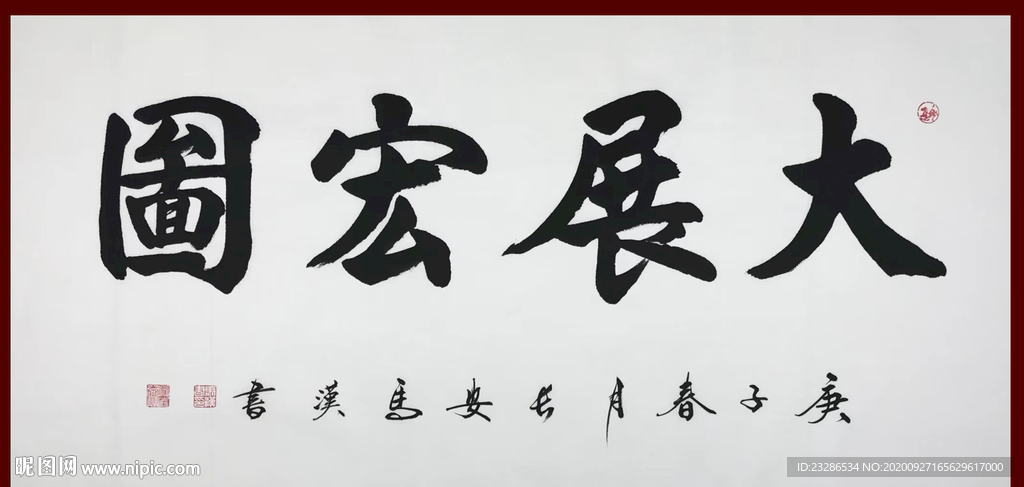 大展宏圖
庚子春月长安馬漢書
昵图网 www.nipic.com
ID:23286534 NO:20200927165629617000